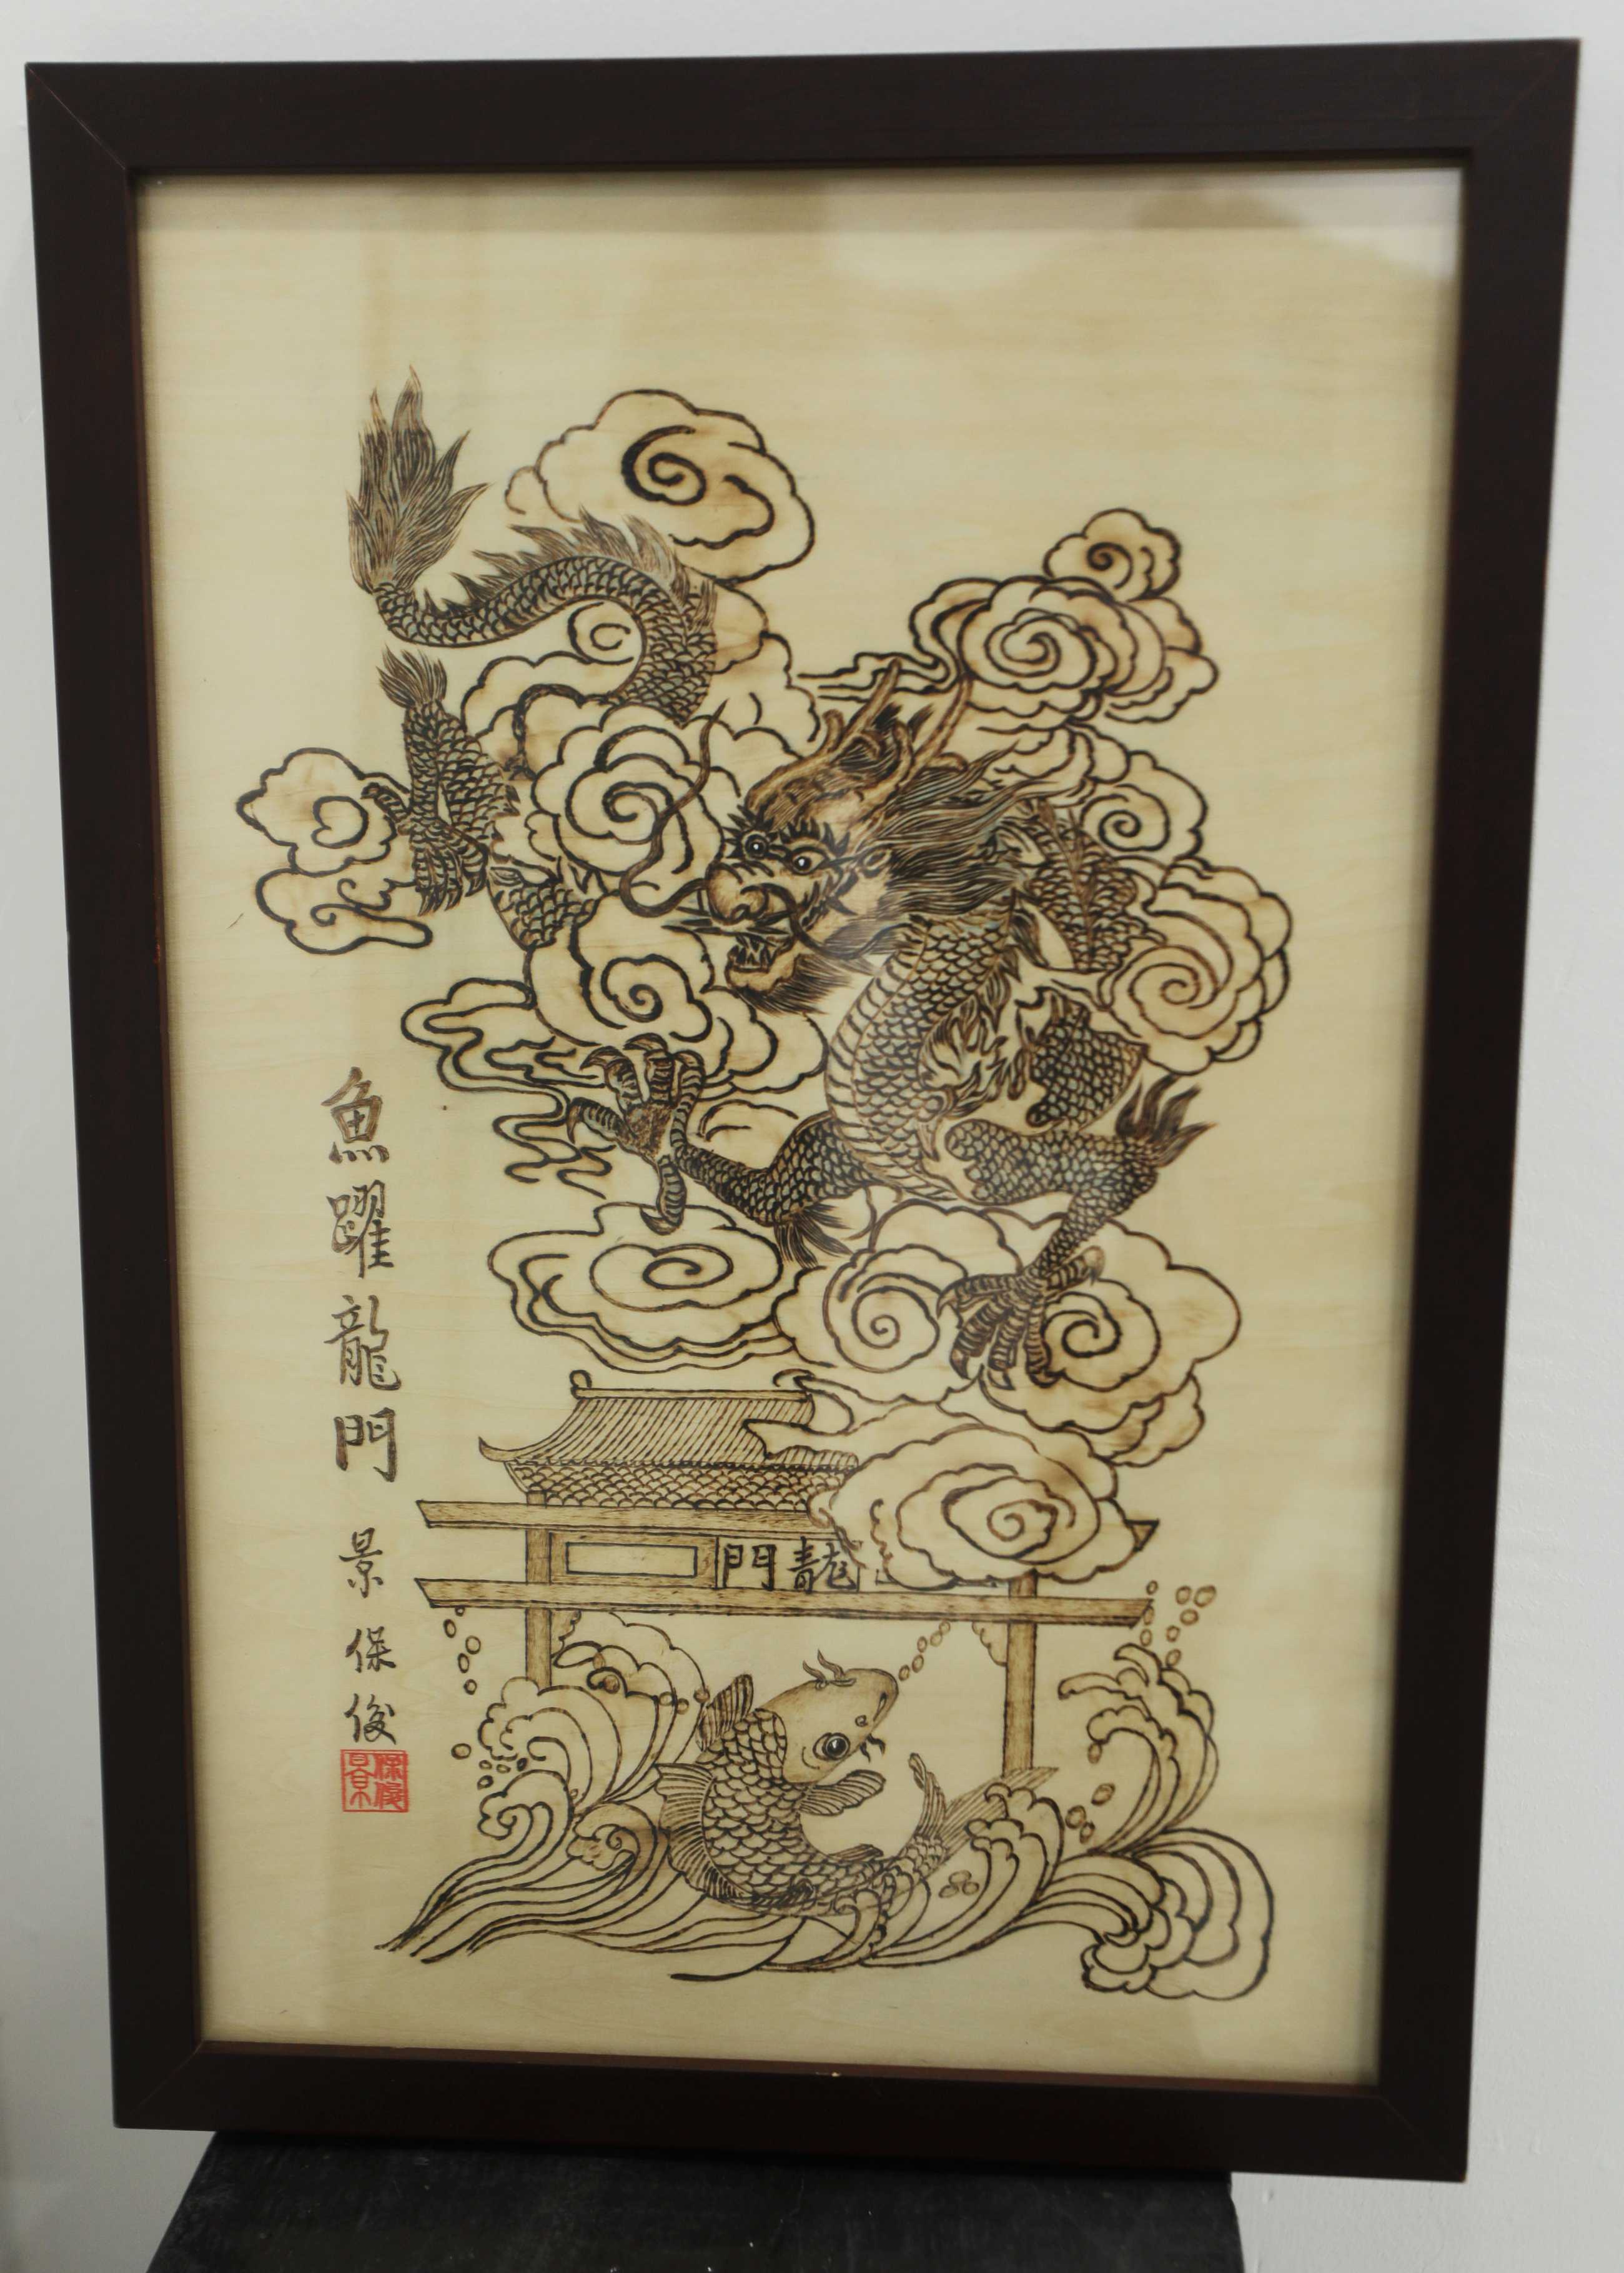 魚躍龍門
景保俊
門龍
景保俊